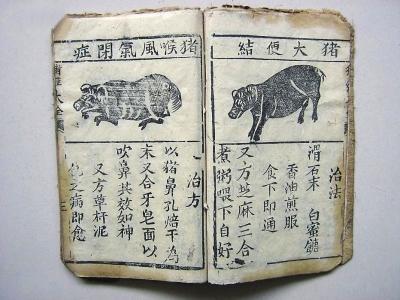 猪大便結
治法
滑石末 白蜜
香油煎服
食下即通
又方芝麻三合
煮粥喂下自好
猪喉風氣閉症
治方
以猪鼻孔焙干為
末又合牙皂面以
吹鼻其效如神
又方草杆泥
之病即愈